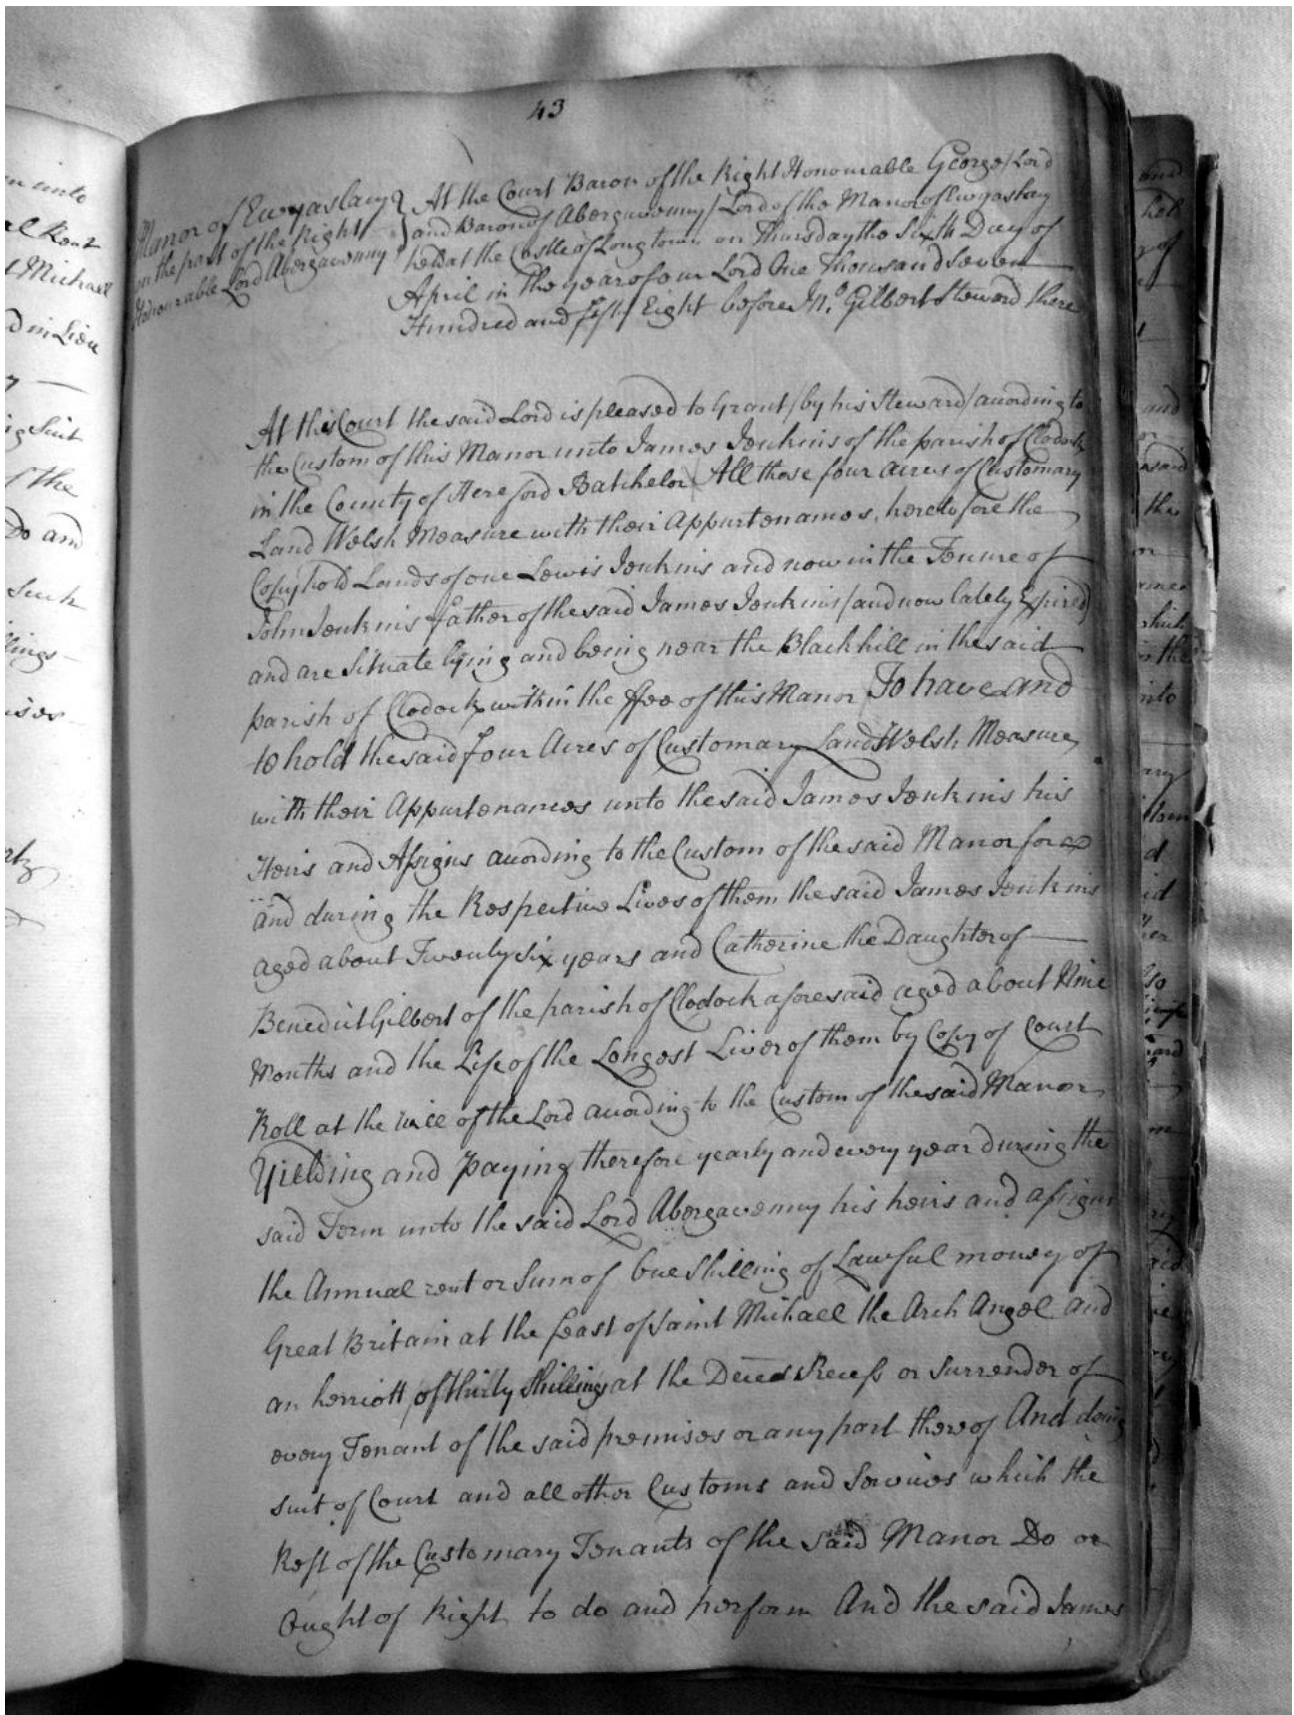 43
Manor of Ewyaslacy
on the part of the Right
Honourable Lord Abergavenny
At the Court Baron of the Right Honourable George / Lord
and Baron of Abergavenny / Lord of the Manor of Ewyaslacy
held at the Castle of Longtown on Thursday the Sixth Day of
April in the year of our Lord One Thousand Seven
Hundred and fifty Eight before Jno. Gilbert Steward there
At this Court the said Lord is pleased to Grant / by his Steward / according to
the Custom of this Manor unto James Jenkins of the parish of Clodock
in the County of Hereford Batchelor All those four acres of Customary
Land Welsh Measure with their Appurtenances, heretofore the
Copyhold Lands of one Lewis Jenkins and now in the Tenure of
John Jenkins father of the said James Jenkins / and now lately Expired
and are Situate lying and being near the Blackhill in the said
parish of Clodock within the ffee of this Manor To have and
to hold the said four Acres of Customary Land Welsh Measure
with their Appurtenances unto the said James Jenkins his
Heirs and Assigns according to the Custom of the said Manor for
and during the Respective Lives of them the said James Jenkins
aged about Twenty Six years and Catherine the Daughter of
Benedict Gilbert of the parish of Clodock aforesaid aged about Nine
Months and the Life of the Longest Liver of them by Copy of Court
Roll at the Will of the Lord according to the Custom of the said Manor
Yielding and Paying therefore yearly and every year during the
said Term unto the said Lord Abergavenny his heirs and assigns
the Annual rent or Sum of One Shilling of Lawful money of
Great Britain at the feast of Saint Michael the Arch Angel And
an herriott of thirty Shillings at the Decease Recess or Surrender of
every Tenant of the said premises or any part thereof And doing
suit of Court and all other Customs and Services which the
Rest of the Customary Tenants of the said Manor Do or
Ought of Right to do and perform And the said James